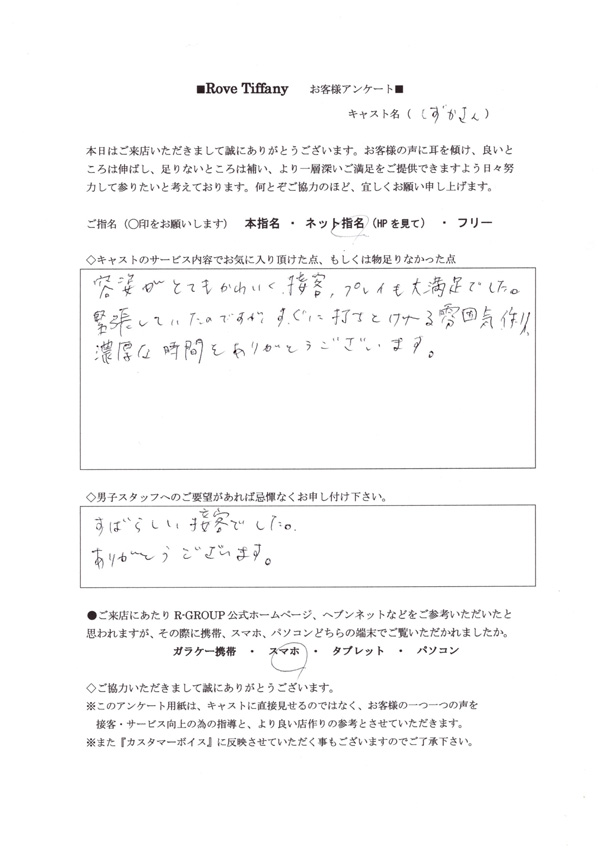 ■Rove Tiffany お客様アンケート■
キャスト名（ しずかさん ）
本日はご来店いただきまして誠にありがとうございます。お客様の声に耳を傾け、良いと
ころは伸ばし、足りないところは補い、より一層深いご満足をご提供できますよう日々努
力して参りたいと考えております。何とぞご協力のほど、宜しくお願い申し上げます。
ご指名（〇印をお願いします） 本指名 ・ ネット指名（HPを見て） ・ フリー
◇キャストのサービス内容でお気に入り頂けた点、もしくは物足りなかった点
容姿がとてもかわいく、接客、プレイも大満足でした。
緊張していたのですが、すぐに打ちとけれる雰囲気作り、
濃厚な時間をありがとうございます。
◇男子スタッフへのご要望があれば忌憚なくお申し付け下さい。
すばらしい接客でした。
ありがとうございます。
●ご来店にあたり R-GROUP 公式ホームページ、ヘブンネットなどをご参考いただいたと
思われますが、その際に携帯、スマホ、パソコンどちらの端末でご覧いただかれましたか。
ガラケー携帯 ・ スマホ ・ タブレット ・ パソコン
◇ご協力いただきまして誠にありがとうございます。
※このアンケート用紙は、キャストに直接見せるのではなく、お客様の一つ一つの声を
接客・サービス向上の為の指導と、より良い店作りの参考とさせていただきます。
※また『カスタマーボイス』に反映させていただく事もございますのでご了承下さい。